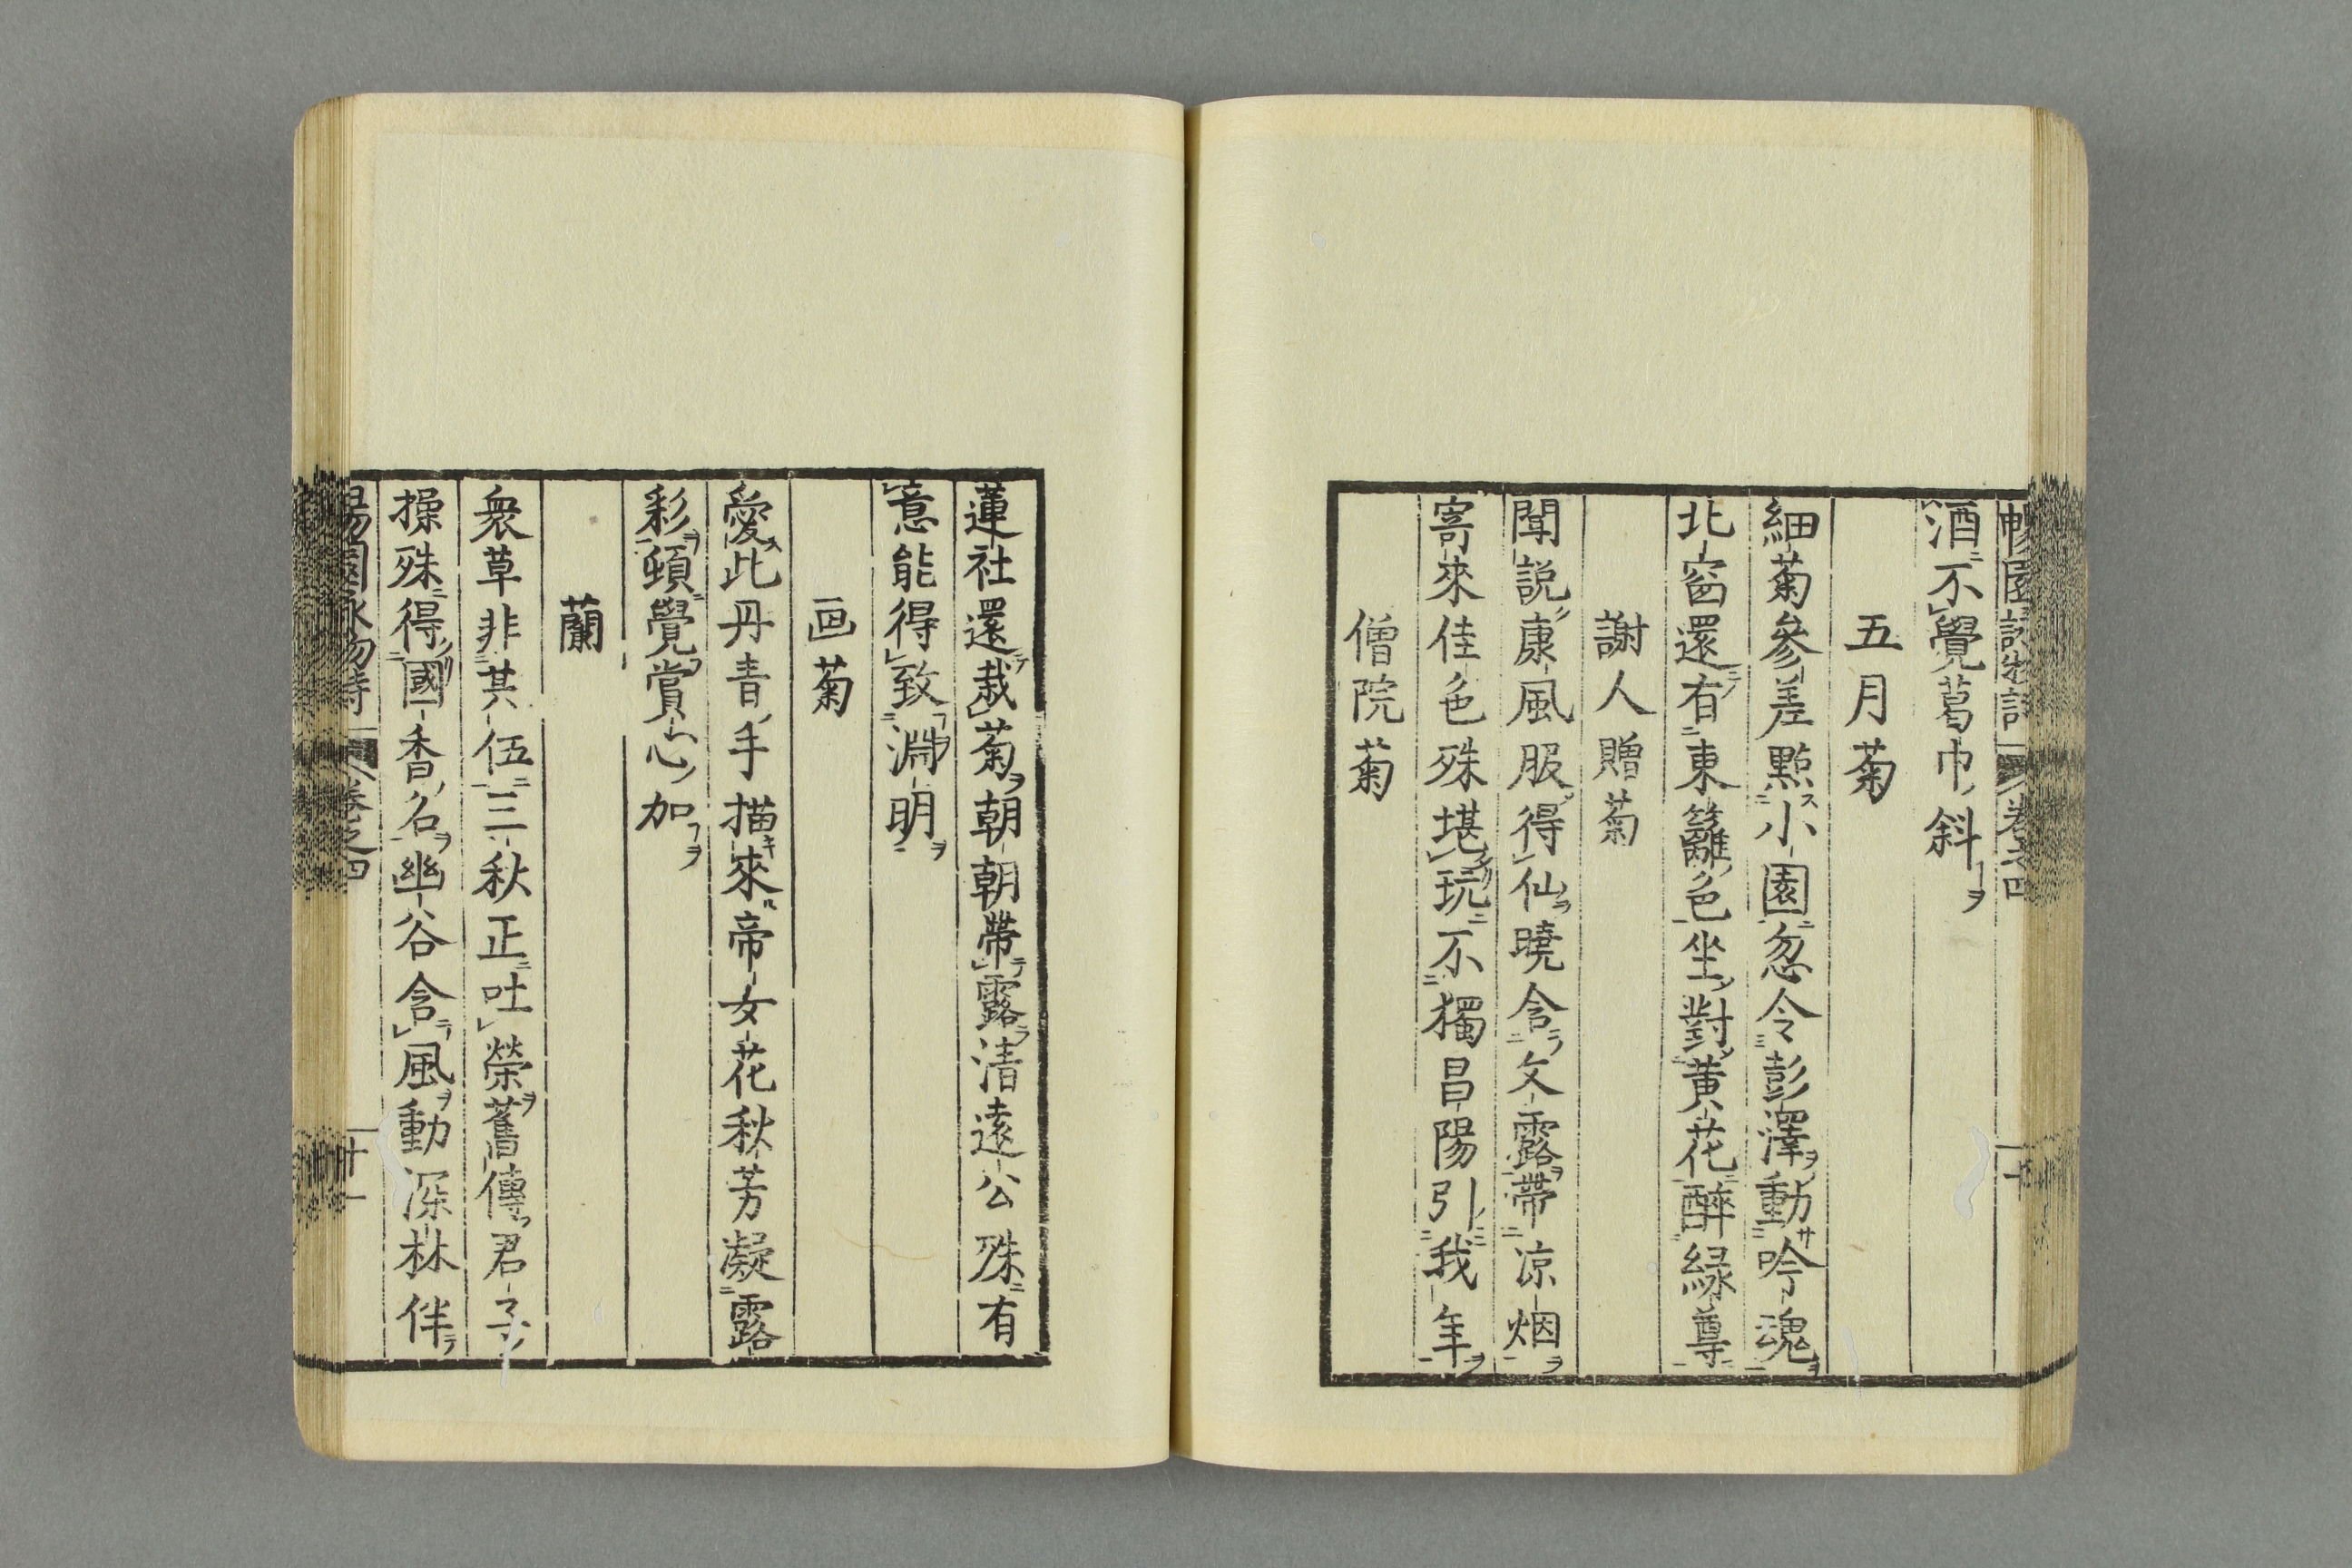 暢園詠物詩 卷之四 十
酒不覺葛巾斜
五月菊
細菊參差點小園忽令彭澤動吟魂
北窗還有東籬色坐對黃花醉緑尊
謝人贈菊
聞説康風服得仙曉含文露帶凉烟
寄來佳色殊堪玩不獨昌陽引我年
僧院菊
蓮社還栽菊朝朝帶露清遠公殊有
意能得致淵明
画菊
愛此丹青手描來帝女花秋芳凝露
彩頓覺賞心加
蘭
衆草非其伍三秋正吐榮舊傳君子
操殊得國香名幽谷含風動深林伴
暢園詠物詩 卷之四 十一